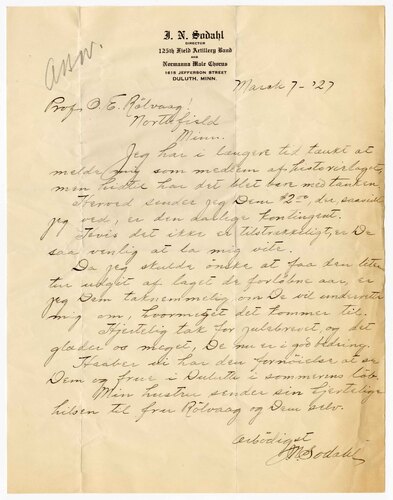 answ.
J. N. Sodahl
DIRECTOR
125th Field Artillery Band
AND
Normanna Male Chorus
1615 JEFFERSON STREET
DULUTH, MINN.
March 7 - '27
Prof. O. E. Rölvaag!
Northfield
Minn.
Jeg har i længere tid tænkt at
melde mig som medlem af historielaget,
men hidtil har det blet bare med tanken.
Hervord sender jeg Dem $2.00, der saavidt
jeg ved, er den aarlige kontingent.
Hvis det ikke er tilstrækkeligt, er De
saa venlig at la mig vite.
Da jeg skulde önske at faa den
udget af laget de forløbne aar, er
jeg Dem taknemmelig om De vil underrette
mig om, hvormeget det kommer til.
Hjertelig tak for julebrevet, og det
glader os meget, De nu er i god bedring.
Haaber vi har den fornöielse at se
Dem og frue i Duluth i sommerens löb.
Min hustru sender sin hjertelige
hilsen til fru Rölvaag og Dem selv.
Ærbödigst
J. N. Sodahl